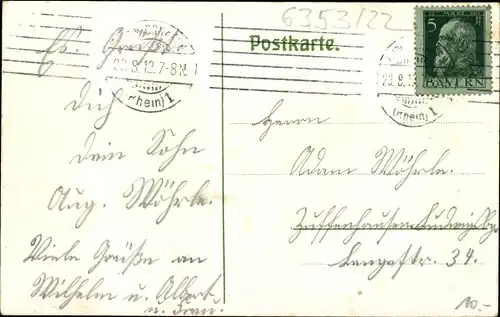 6353/22
Postkarte.
5
BAYERN
23.8.12.7-8N.
(Rhein) 1
(Rhein) 1
Es Grüßt
Dich
dein Sohn
Aug. Wöhrle.
Viele Grüße an
Wilhelm u. Albert
u. Frau.
Herrn
Adam Wöhrle.
Zuffenhausen
Langestr. 34.
10.-